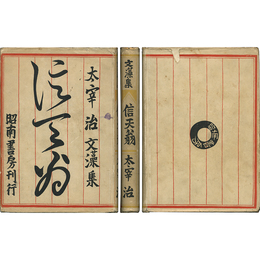 信天翁
太宰治文藻集
昭南書房刊行
文藻集
信天翁
太宰治